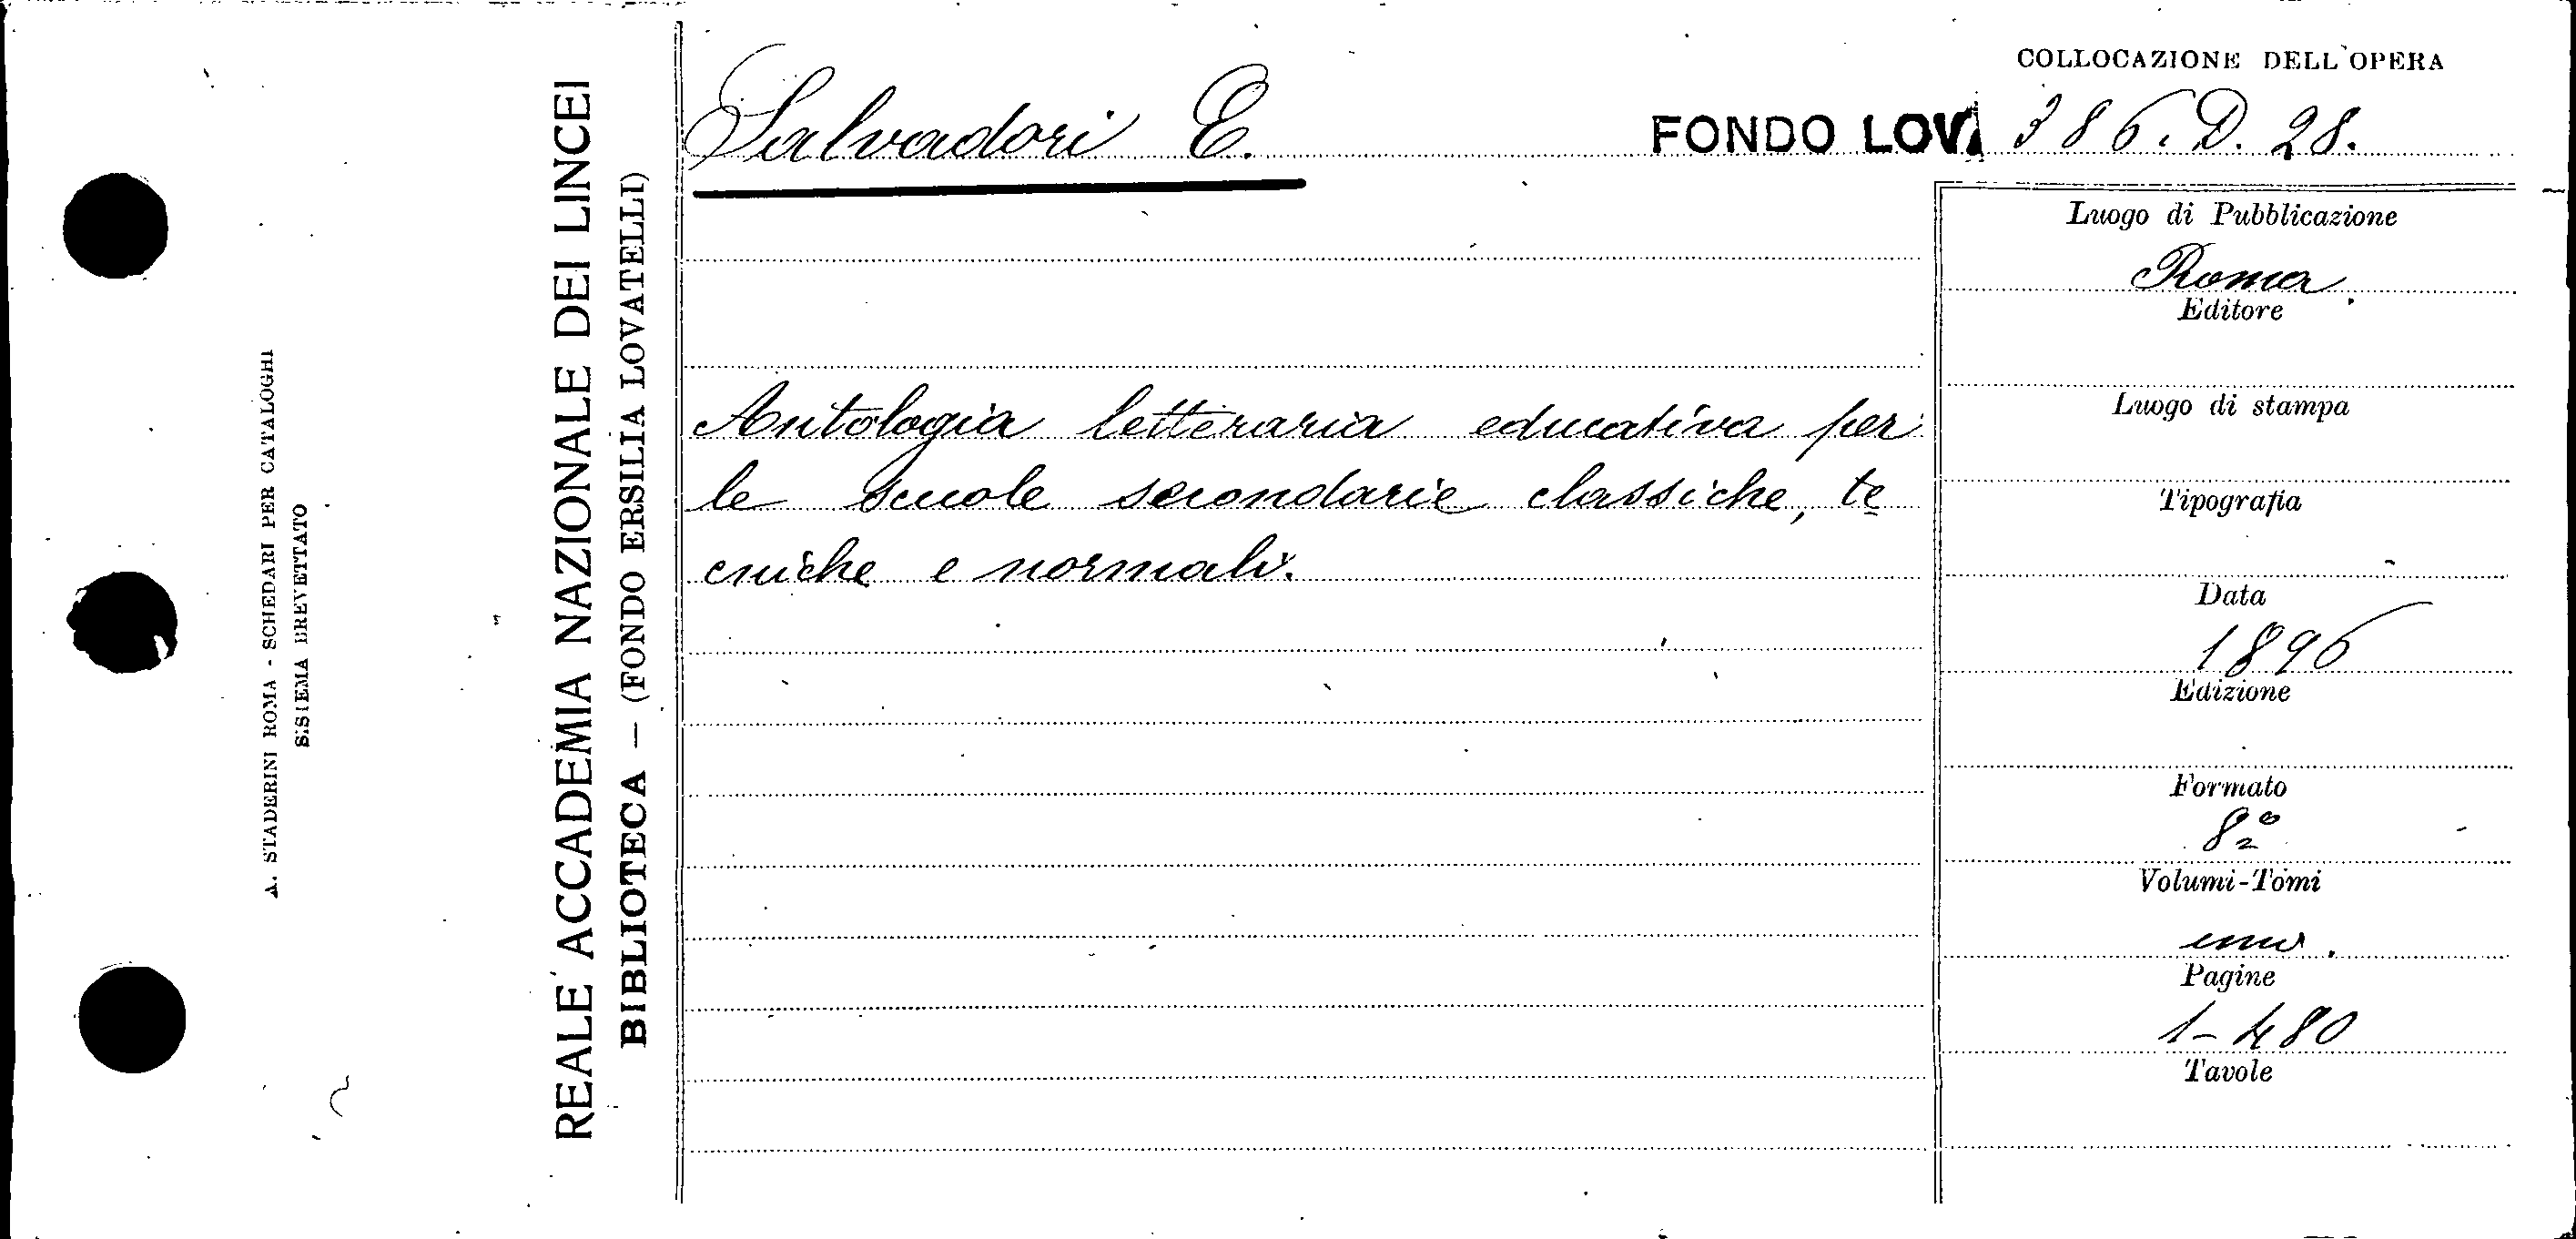 COLLOCAZIONE DELL'OPERA
Salvadori E.
FONDO LOVA 386. D. 28.
Luogo di Pubblicazione
Roma.
Editore
Antologia letteraria educativa per
le scuole secondarie classiche, te
cniche e normali.
Luogo di stampa
Tipografia
Data
1896
Edizione
Formato
8º
Volumi-Tomi
uno.
Pagine
1-480
Tavole
REALE ACCADEMIA NAZIONALE DEI LINCEI
BIBLIOTECA — (FONDO ERSILIA LOVATELLI)
A. STADERINI ROMA - SCHEDARI PER CATALOGHI
SISTEMA BREVETTATO